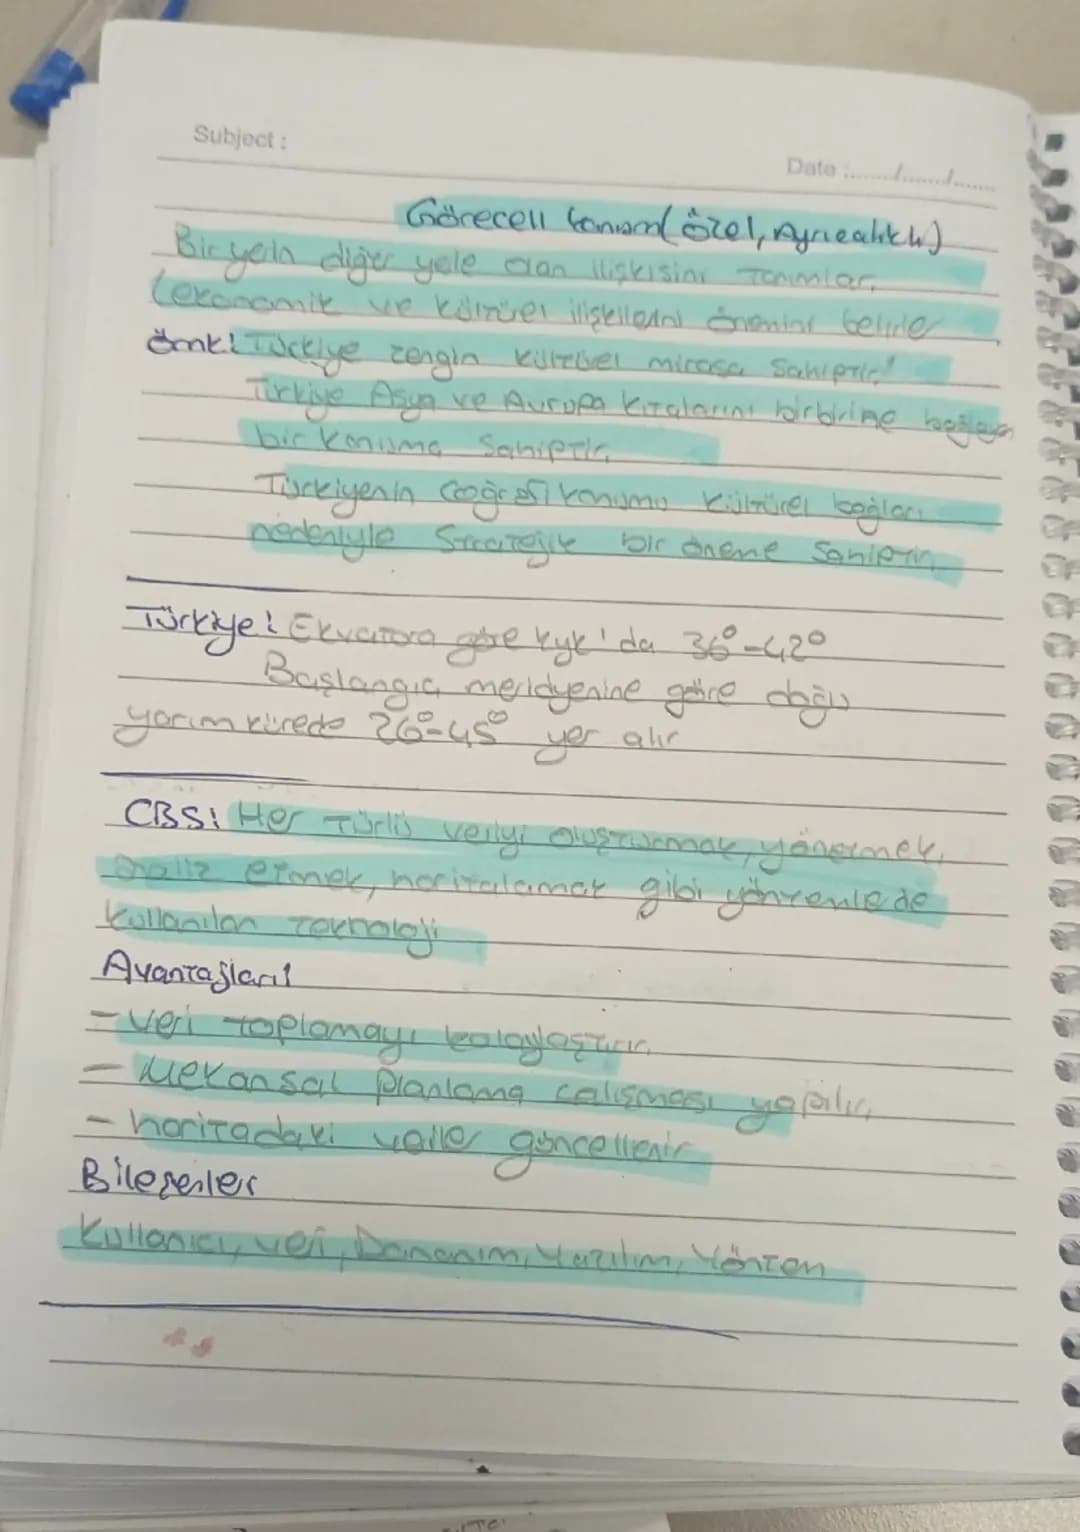 Subject :
Date :......./......./.......
Göreceli konum (özel, Ayrıcalıklı)
Bir yerin diğer yerle olan ilişkisini tanımlar.
(ekonomik ve kültürel ilişkilerini önemini belirler
örnk: Türkiye zengin kültürel mirasa sahiptir.
Türkiye Asya ve Avrupa kıtalarını birbirine bağlayan
bir konuma sahiptir.
Türkiyenin coğrafi konumu kültürel bağları
nedeniyle stratejik bir öneme sahiptir.
Türkiye: Ekvatora göre kyk'da 36°-42°
Başlangıç meridyenine göre doğu
yarım kürede 26°-45° yer alır
CBS: Her türlü veriyi oluşturmak, yönetmek,
analiz etmek, haritalamak gibi yöntemlerde
kullanılan teknoloji
Avantajları:
- veri toplamayı kolaylaştırır.
- Mekansal planlama çalışması yapılır.
- haritadaki veriler güncellenir
Bileşenler
Kullanıcı, veri, Donanım, Yazılım, Yöntem